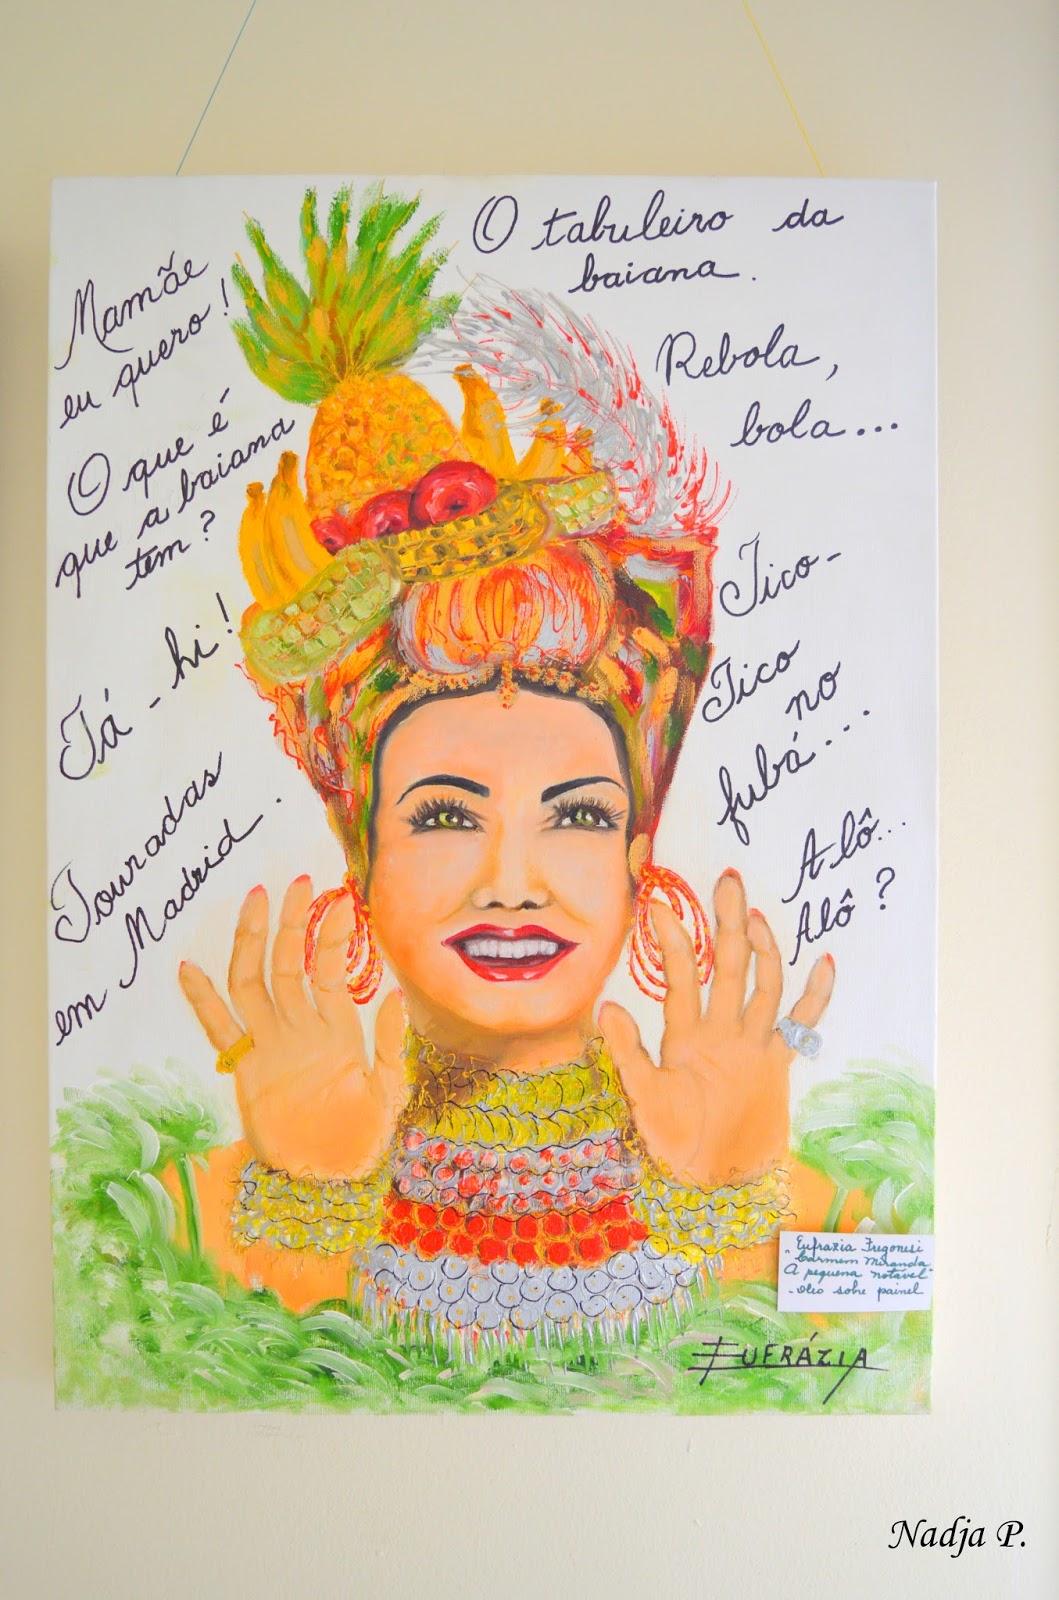 Mamãe
eu quero!
O que é
que a baiana
tem?
Tá-hi!
Touradas
em Madrid.
O tabuleiro da
baiana.
Rebola,
bola...
Tico-
Tico
no
fubá...
Alô...
Alô?
Eufrazia Fregonesi
"Carmem Miranda
A pequena notável"
-Oleo sobre painel
EUFRÁZIA
Nadja P.